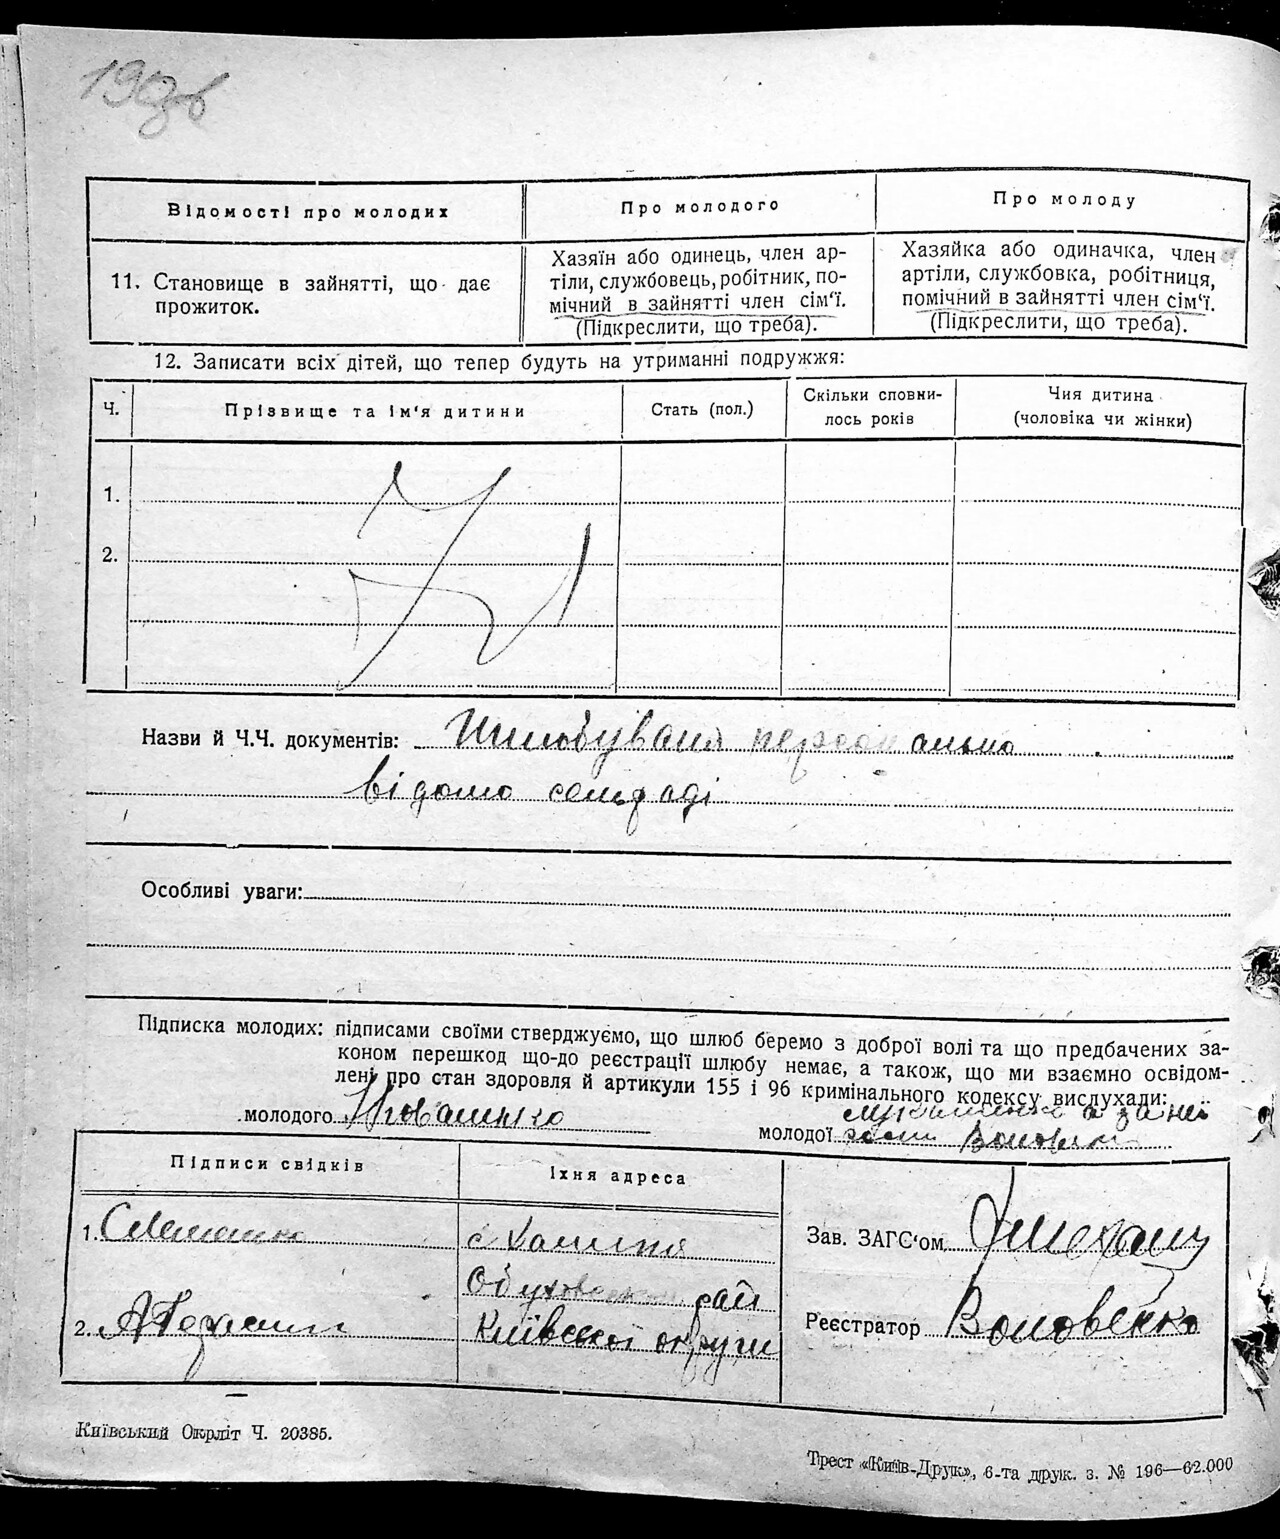 190зв
Відомості про молодих
Про молодого
Про молоду
11. Становище в зайнятті, що дає
прожиток.
Хазяїн або одинець, член ар-
тіли, службовець, робітник, по-
мічний в зайнятті член сім'ї.
(Підкреслити, що треба).
Хазяйка або одиначка, член
артіли, службовка, робітниця,
помічний в зайнятті член сім'ї.
(Підкреслити, що треба).
12. Записати всіх дітей, що тепер будуть на утриманні подружжя:
Ч.
Прізвище та ім'я дитини
Стать (пол.)
Скільки сповни-
лось років
Чия дитина
(чоловіка чи жінки)
1.
2.
Назви й Ч.Ч. документів: персонально
відомо сельраді
Особливі уваги:
Підписка молодих: підписами своїми стверджуємо, що шлюб беремо з доброї волі та що предбачених за-
коном перешкод що-до реєстрації шлюбу немає, а також, що ми взаємно освідом-
лені про стан здоров'я й артикули 155 і 96 кримінального кодексу вислухали:
молодого
молодої а за неї
Підписи свідків
Їхня адреса
1.
с
Обуховськ рай
2.
Київської округи
Зав. ЗАГС'ом
Реєстратор Воловенко
Київський Окрліт Ч. 20385.
Трест «Київ-Друк», 6-та друк. з. № 196—62.000